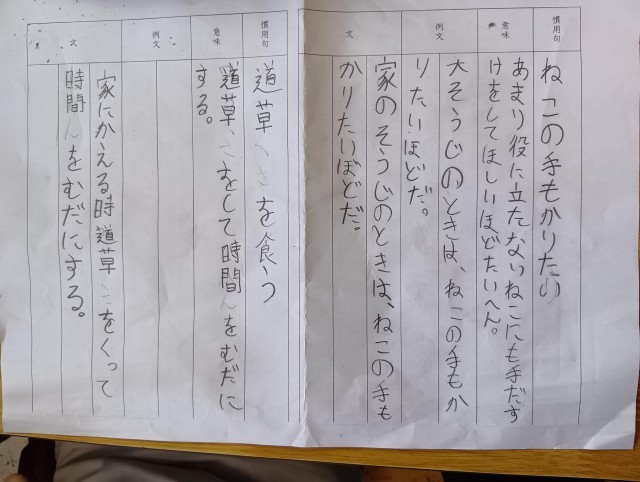 慣用句
ねこの手もかりたい
意味
あまり役に立たないねこにも手だす
けをしてほしいほどたいへん。
例文
大そうじのときは、ねこの手もか
りたいほどだ。
文
家のそうじのときは、ねこの手も
かりたいほどだ。
慣用句
道草くさを食う
意味
道草、さをして時間んをむだに
する。
例文
文
家にかえる時道草くさをくって
時間んをむだにする。